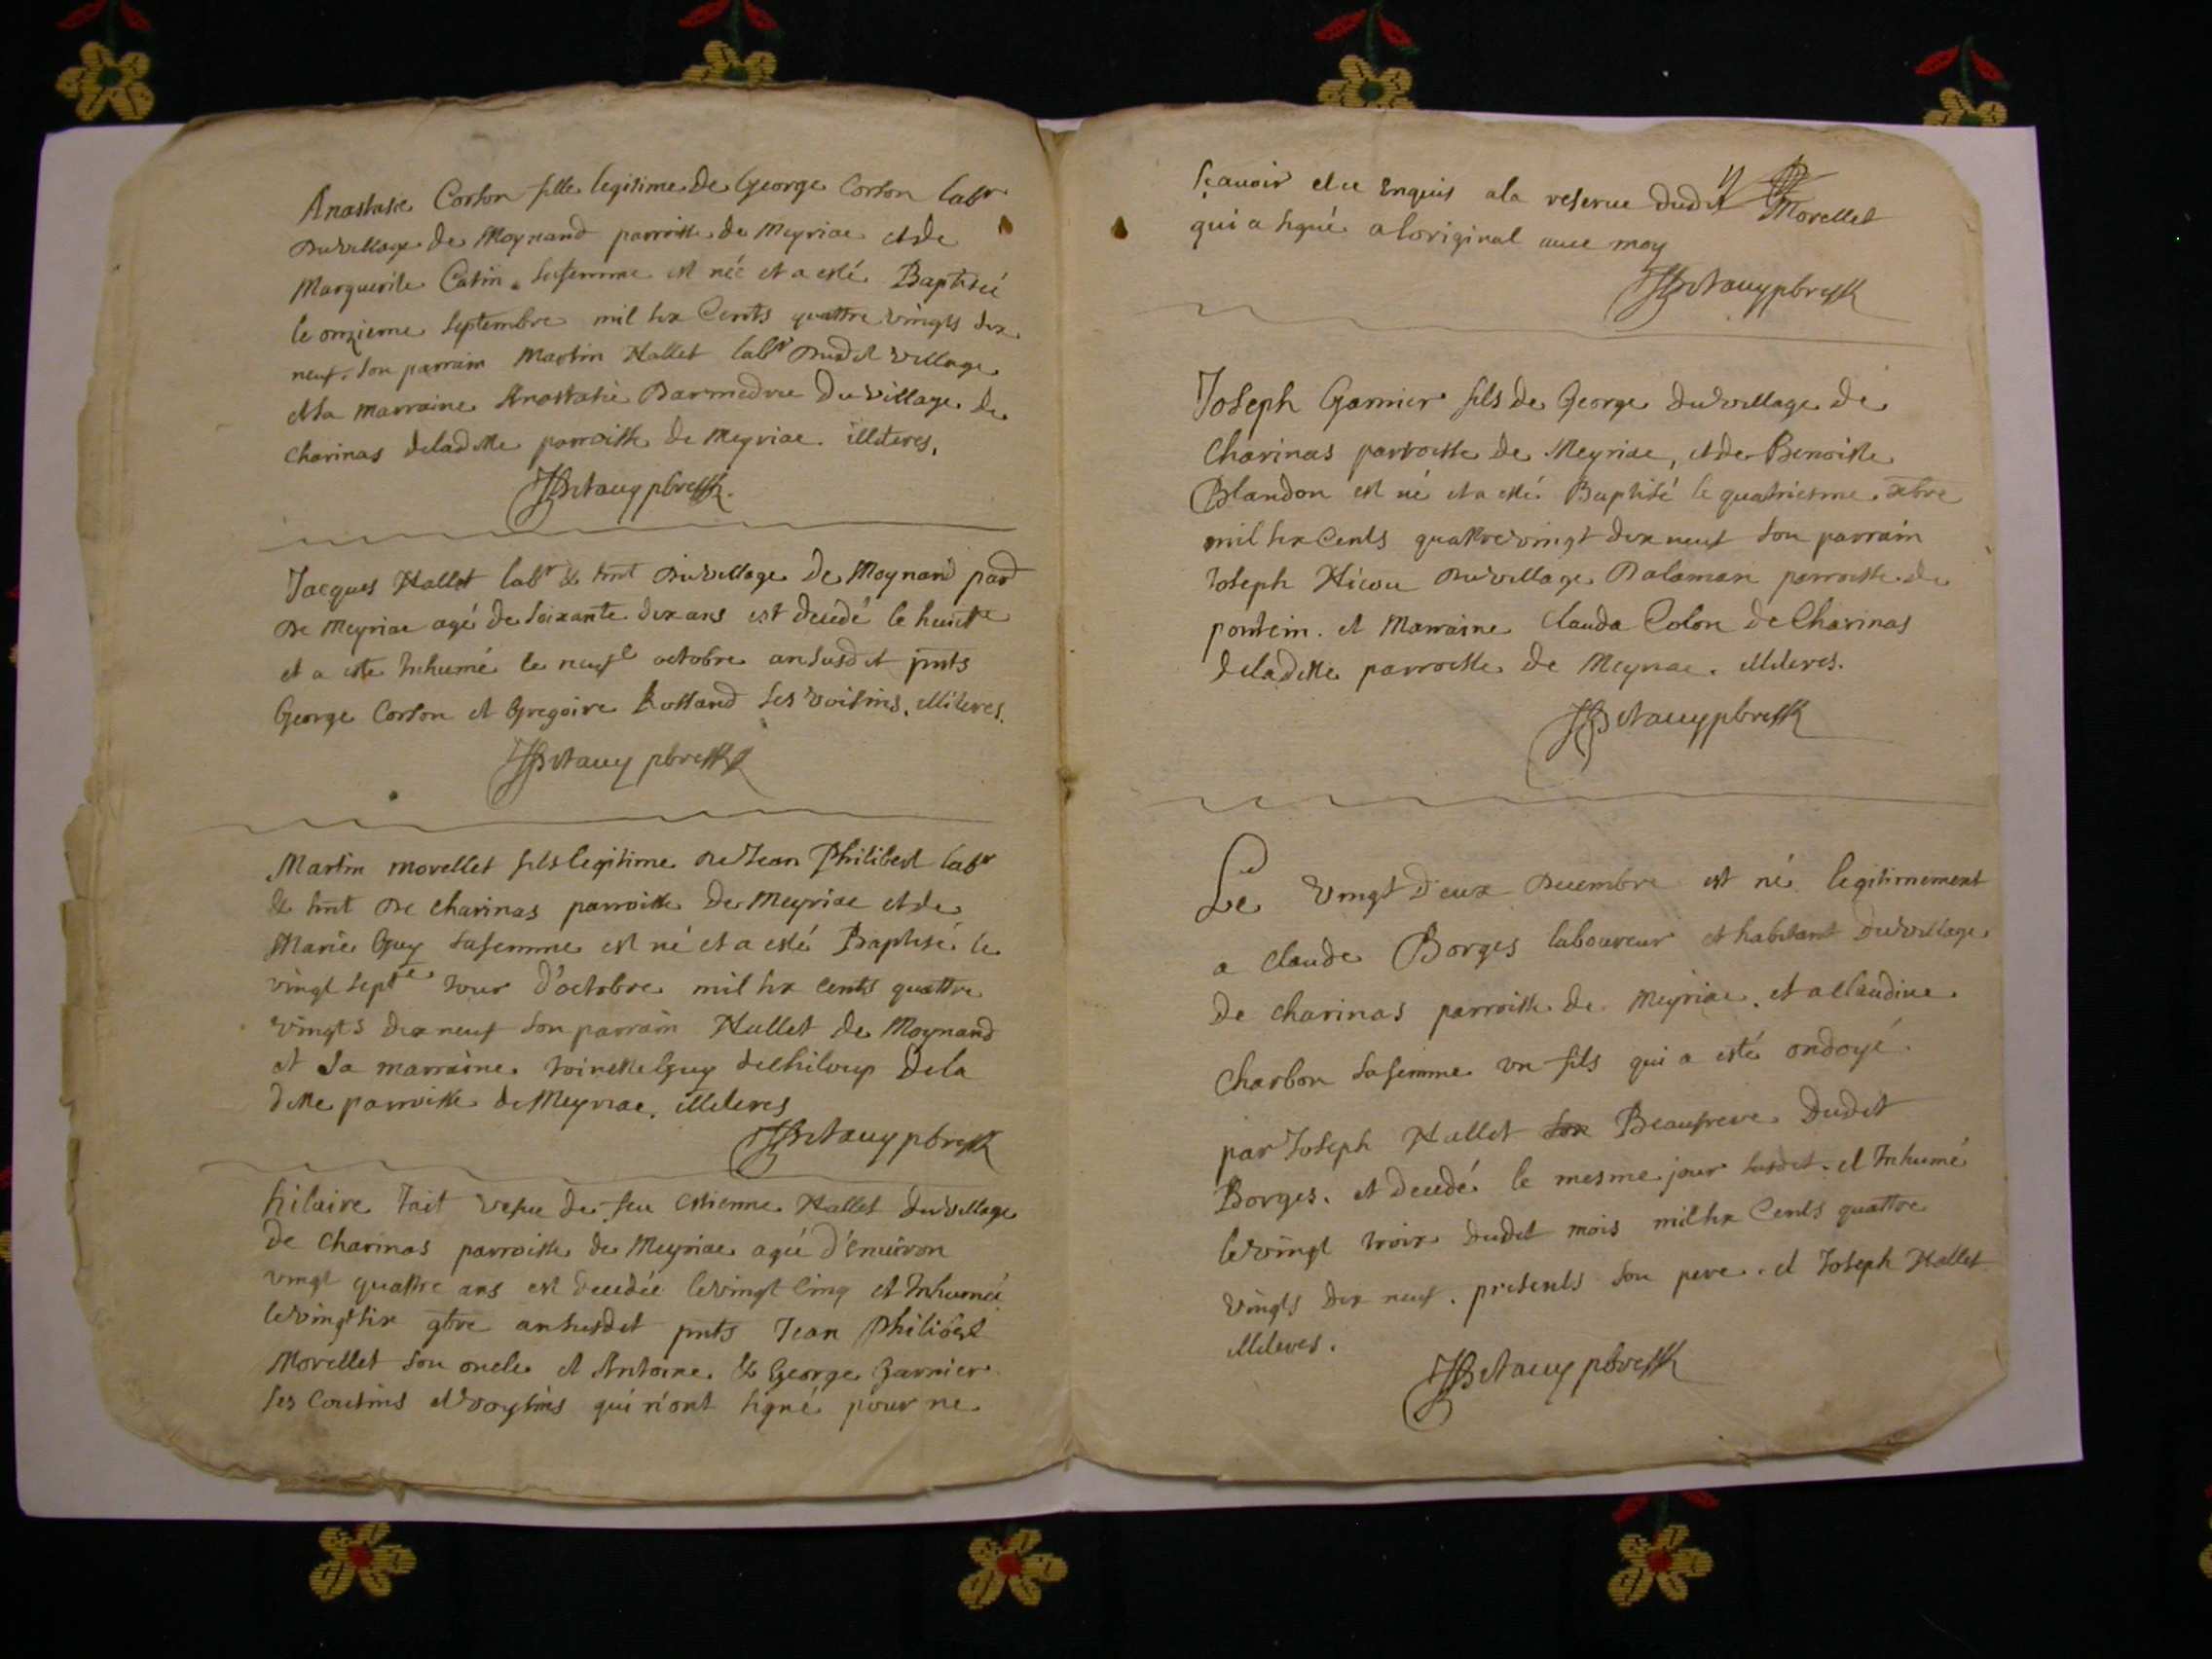 Anastasie Corton fille legitime de George Corton labr
du village de Moynand parroisse de Meyriae et de
Marguerite Catin sa femme est née et a esté Baptisée
le onzieme septembre mil six Cents quattre vingts dix
neuf. son parrain Martin Hallet labr dudit village
et sa marraine Anastasie Darmedru du village de
Charinas deladitte parroisse de Meyriae. illiteres.
pbre
Jacques Hallet labr & hnt du village de Moynand par
de Meyriae agé de soixante dix ans est decedé le huict
et a este Inhumé le neufe octobre an susdit pnts
George Corton et Gregoire Rolland ses voisins. illiteres.
pbre
Martin Morellet fils legitime de Jean Philibert labr
& hnt de Charinas parroisse de Meyriae et de
Marie Guy sa femme est né et a esté Baptisé le
vingt septe Jour d'octobre mil six cents quattre
vingts dix neuf son parrain Hallet de Moynand
et sa marraine toinette Guy de
ditte parroisse de Meyriae. illiteres
pbre
hilaire Tait vefue de feu Estienne Hallet du village
de Charinas parroisse de Meyriae agée d'enuiron
vingt quattre ans est decedée le vingt cinq et Inhumée
le vingt six 9bre an susdit pnts Jean Philibert
Morellet son oncle et Antoine & George Garnier
ses Cousins et voysins qui n'ont signé pour ne
sçauoir de ce Enquis a la reserue dudit Morellet
qui a signé a loriginal auec moy
pbre
Joseph Garnier fils de George du village de
Charinas parroisse de Meyriae, et de Benoitte
Blandon est né et a esté Baptisé le quatriesme xbre
mil six Cents quattre vingt dix neuf son parrain
Joseph du village parroisse de
pontein. et Marraine Clauda Colon de Charinas
deladitte parroisse de Meyriae. illiteres.
pbre
Le vingt deux Decembre est né legitimement
a Claude Borges laboureur et habitant du village
de Charinas parroisse de Meyriae. et a Claudine
Charbon sa femme vn fils qui a esté ondoyé.
par Joseph Hallet son Beaufrere dudit
Borges. et decedé le mesme jour susdit. et Inhumé
le vingt trois dudit mois mil six Cents quattre
vingts dix neuf. presents son pere. et Joseph Hallet
illiteres.
pbre